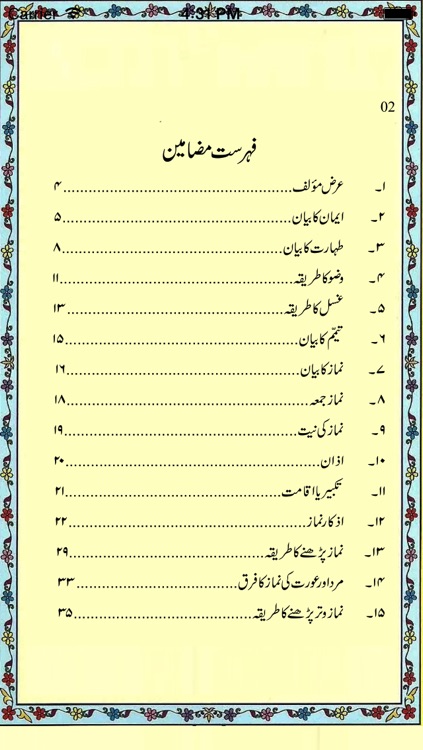 Carrier 4:31 PM
02
فہرست مضامین
۱۔ عرض مؤلف ۴
۲۔ ایمان کا بیان ۵
۳۔ طہارت کا بیان ۸
۴۔ وضو کا طریقہ ۱۱
۵۔ غسل کا طریقہ ۱۳
۶۔ تیمّم کا بیان ۱۵
۷۔ نماز کا بیان ۱۶
۸۔ نماز جمعہ ۱۸
۹۔ نماز کی نیت ۱۹
۱۰۔ اذان ۲۰
۱۱۔ تکبیر یا اقامت ۲۱
۱۲۔ اذکار نماز ۲۲
۱۳۔ نماز پڑھنے کا طریقہ ۲۹
۱۴۔ مرد اور عورت کی نماز کا فرق ۳۳
۱۵۔ نماز وتر پڑھنے کا طریقہ ۳۵